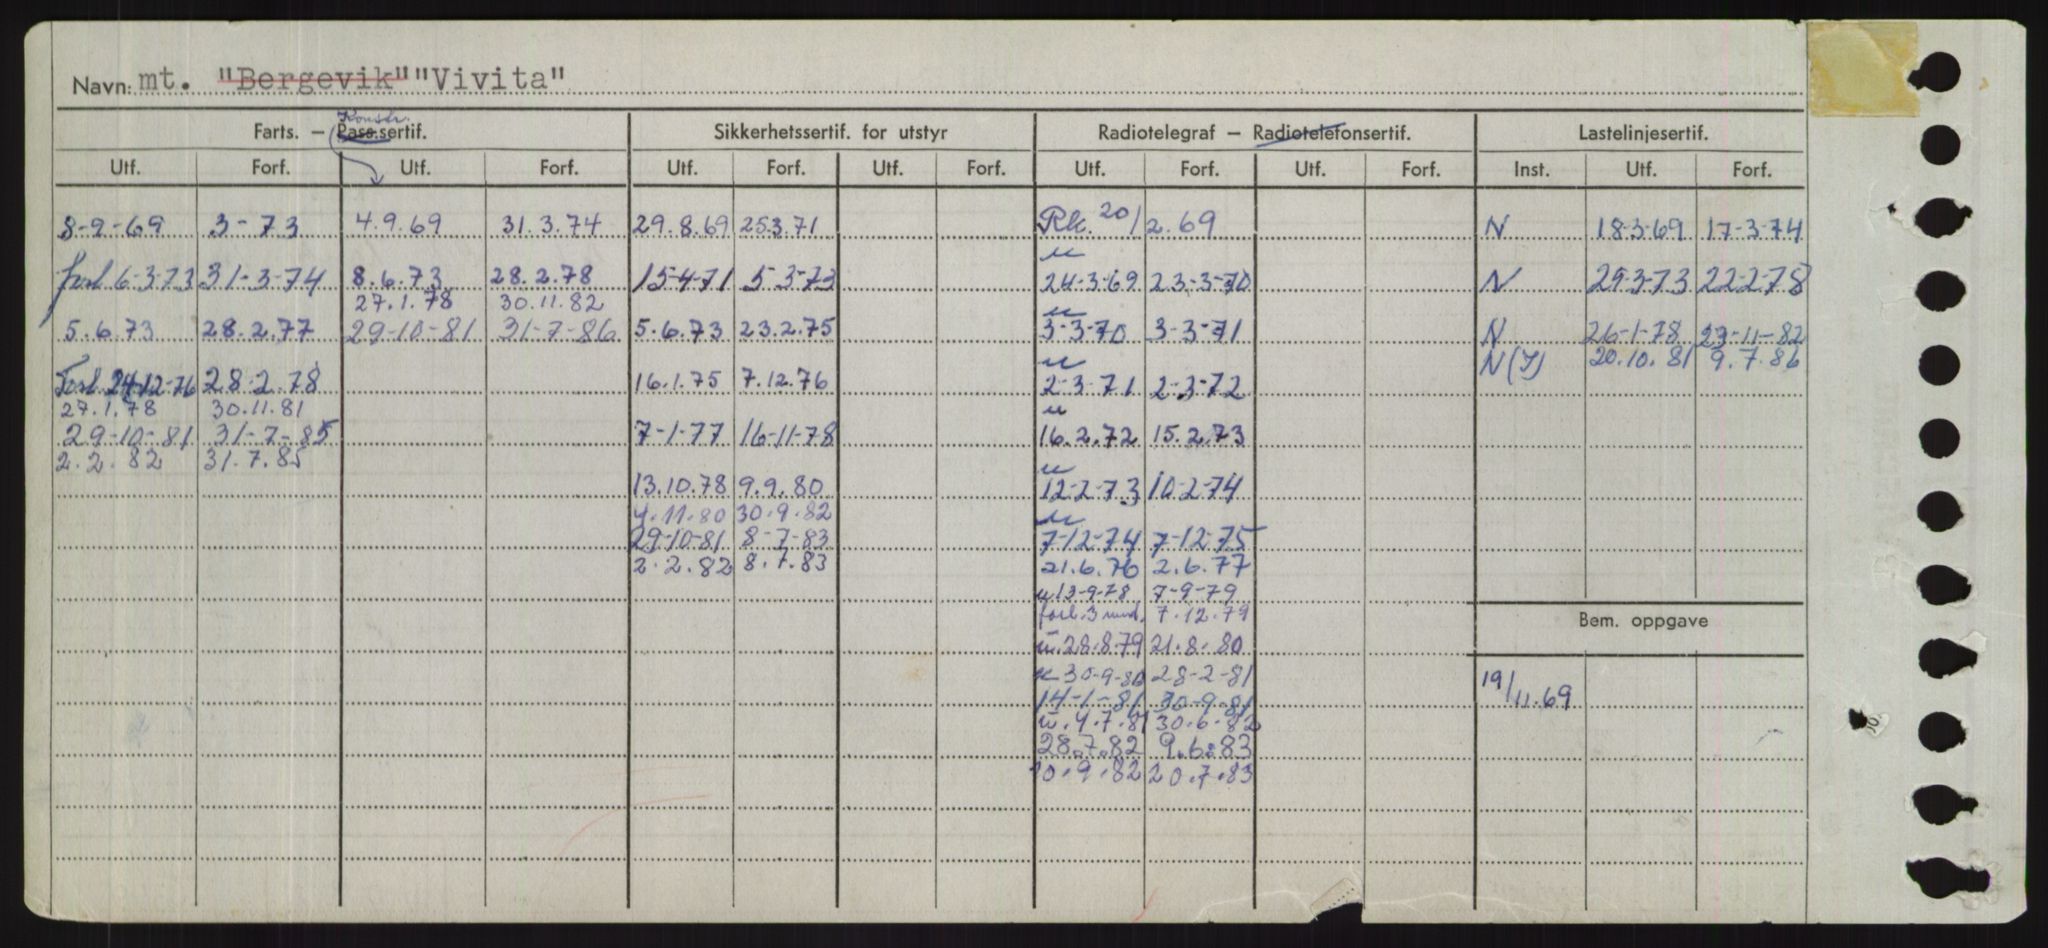 Navn: mt. "Bergevik" "Vivita"
Konstr.
Farts. – Pass.sertif. Sikkerhetssertif. for utstyr Radiotelegraf – Radiotelefonsertif. Lastelinjesertif.
Utf. Forf. Utf. Forf. Utf. Forf. Utf. Forf. Utf. Forf. Utf. Forf. Inst. Utf. Forf.
8-9-69 3-73 4.9.69 31.3.74 29.8.69 25.3.71 Rk. 20/2.69 N 18-3-69 17-3-74
u
forl 6-3-73 31-3-74 8.6.73 28.2.78 15-4-71 5-3-73 24-3-69 23-3-70 N 29-3-73 22-2-78
27.1.78 30.11.82
u
5.6.73 28.2.77 29-10-81 31-7-86 5.6.73 23.2.75 3-3-70 3-3-71 N 26-1-78 23-11-82
u N(I) 20.10.81 9.7.86
Forl 24-12-76 28-2-78 16.1.75 7.12.76 2-3-71 2-3-72
27.1.78 30.11.81 u
29-10-81 31-7-85 7-1-77 16-11-78 16.2.72 15.2.73
2.2.82 31.7.85 u
13.10.78 9.9.80 12-2-73 10-2-74
4.11.80 30.9.82 u
29-10-81 8-7-83 7-12-74 7-12-75
2.2.82 8.7.83 21.6.76 2.6.77
u 13-9-78 7-9-79
forl. 3 mnd. 7.12.79
Bem. oppgave
u. 28.8.79 21.8.80
u 30-9-80 28-2-81
19/11.69
14-1-81 30-9-81
u. 4.7.81 30.6.82
28.7.82 9.6.83
10.9.82 20.7.83